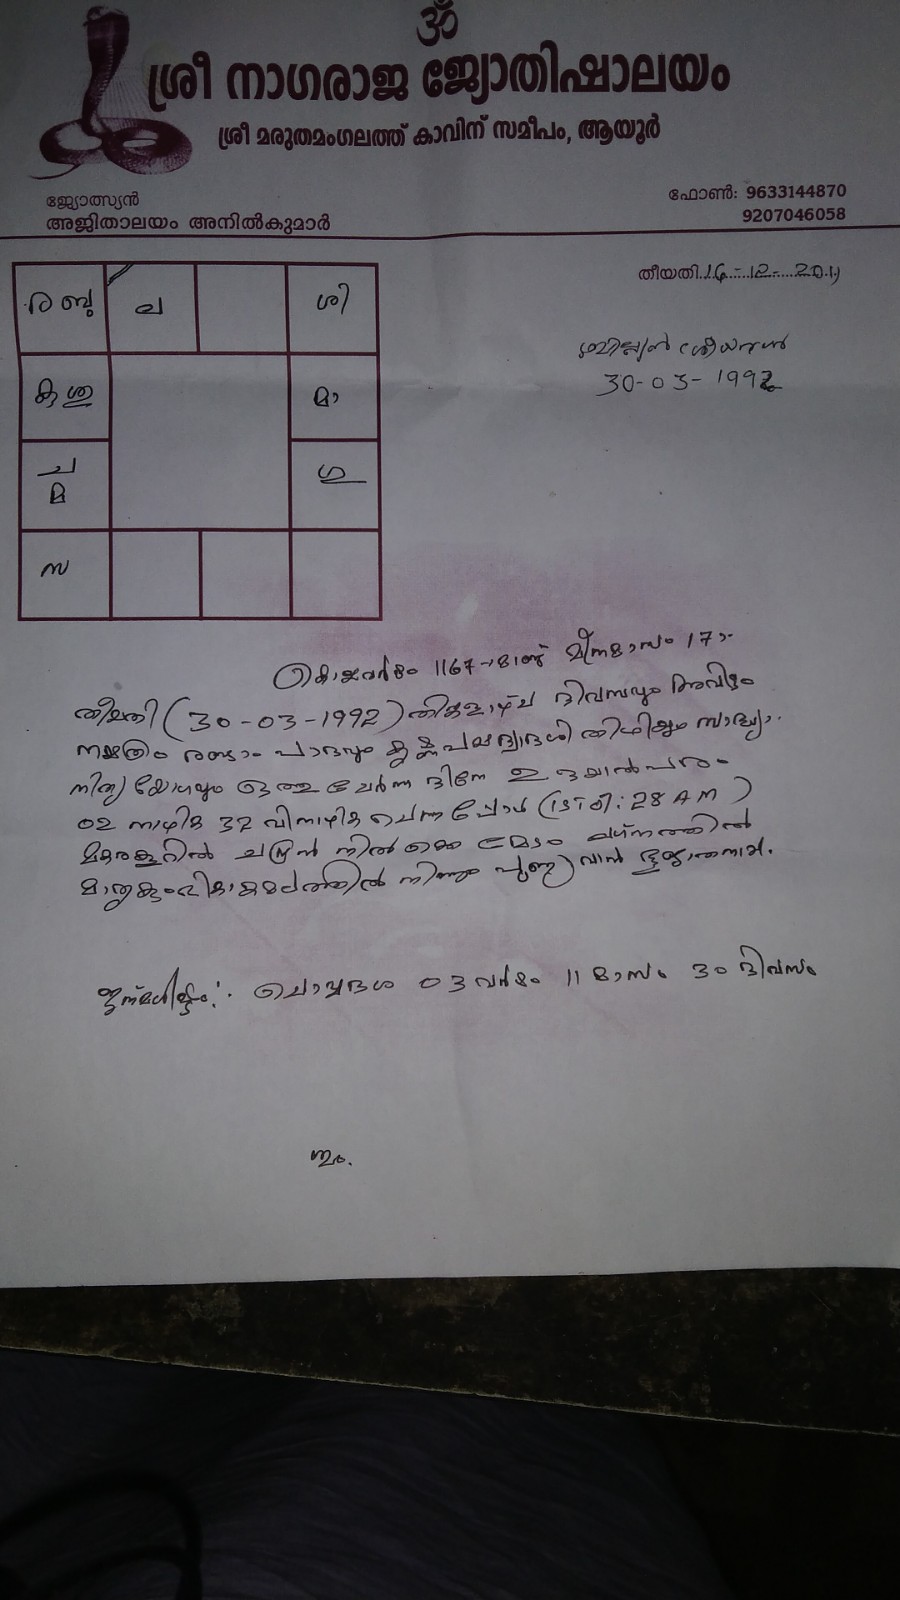 ॐ
ശ്രീ നാഗരാജ ജ്യോതിഷാലയം
ശ്രീ മരുതമംഗലത്ത് കാവിന് സമീപം, ആയൂർ
ജ്യോത്സ്യൻ
അജിതാലയം അനിൽകുമാർ
ഫോൺ: 9633144870
9207046058
തീയതി
30-03-1992
ര ബു
ല
ശി
കു ശു
മാ
ച
മ
ഗു
സ
കൊല്ലവർഷം 1167-ാമാണ്ട് മീനമാസം 17ാം
തീയതി (30-03-1992) തിങ്കളാഴ്ച ദിവസവും അവിട്ടം
നക്ഷത്രം രണ്ടാം പാദവും കൃഷ്ണപക്ഷ ദ്വാദശി തിഥിയും സാദ്ധ്യ
നിത്യയോഗവും ഒത്തു ചേർന്ന ദിനേ ഉദയാൽപരം
02 നാഴിക 32 വിനാഴിക ചെന്നപ്പോൾ
മകരക്കൂറിൽ ചന്ദ്രൻ നിൽക്കെ മേടം ലഗ്നത്തിൽ
നിന്നും പുണ്യവാൻ ഭൂജാതനായി.
ജന്മശിഷ്ടം: ചൊവ്വദശ 03 വർഷം 11 മാസം 30 ദിവസം